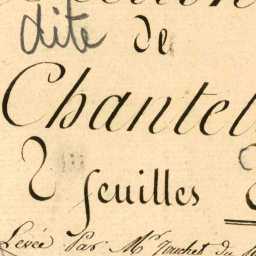 dite de
Chantel
2 feuilles
Levée Par Mr Touchet du